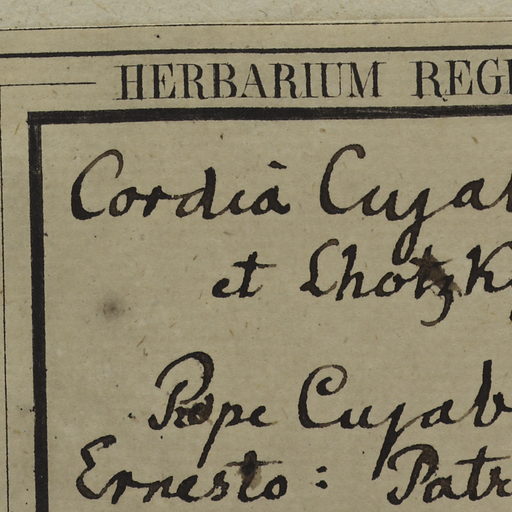 HERBARIUM REGI
Cordia Cujab
et Lhotzk
Prope Cujab
Ernesto: Patr